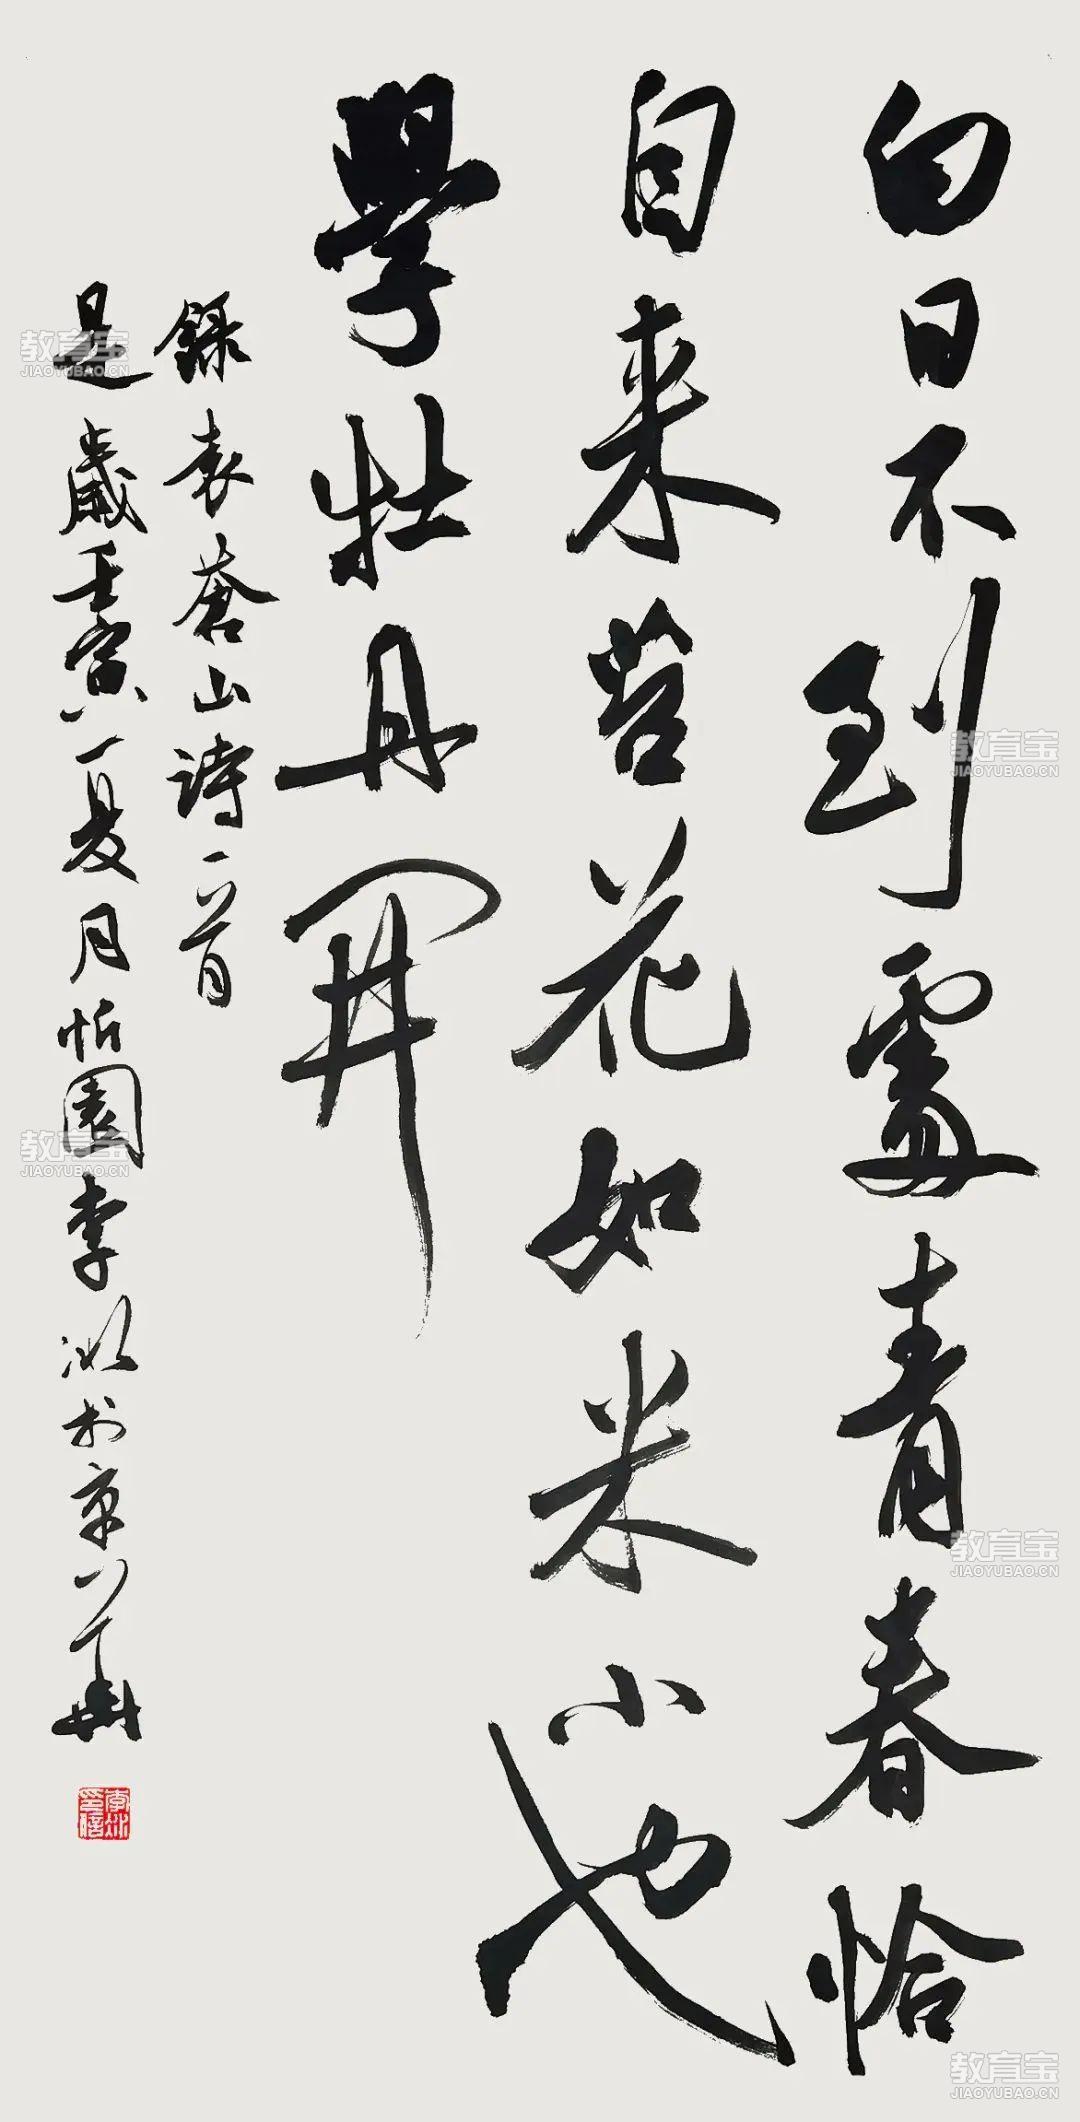 白日不到處青春恰
自来苔花如米小也
學牡丹開
錄袁蒼山詩一首
是歲壬寅夏月忻園李冰於京華
教育宝
JIAOYUBAO.CN
教育宝
JIAOYUBAO.CN
教育宝
JIAOYUBAO.CN
教育宝
JIAOYUBAO.CN
教育宝
JIAOYUBAO.CN